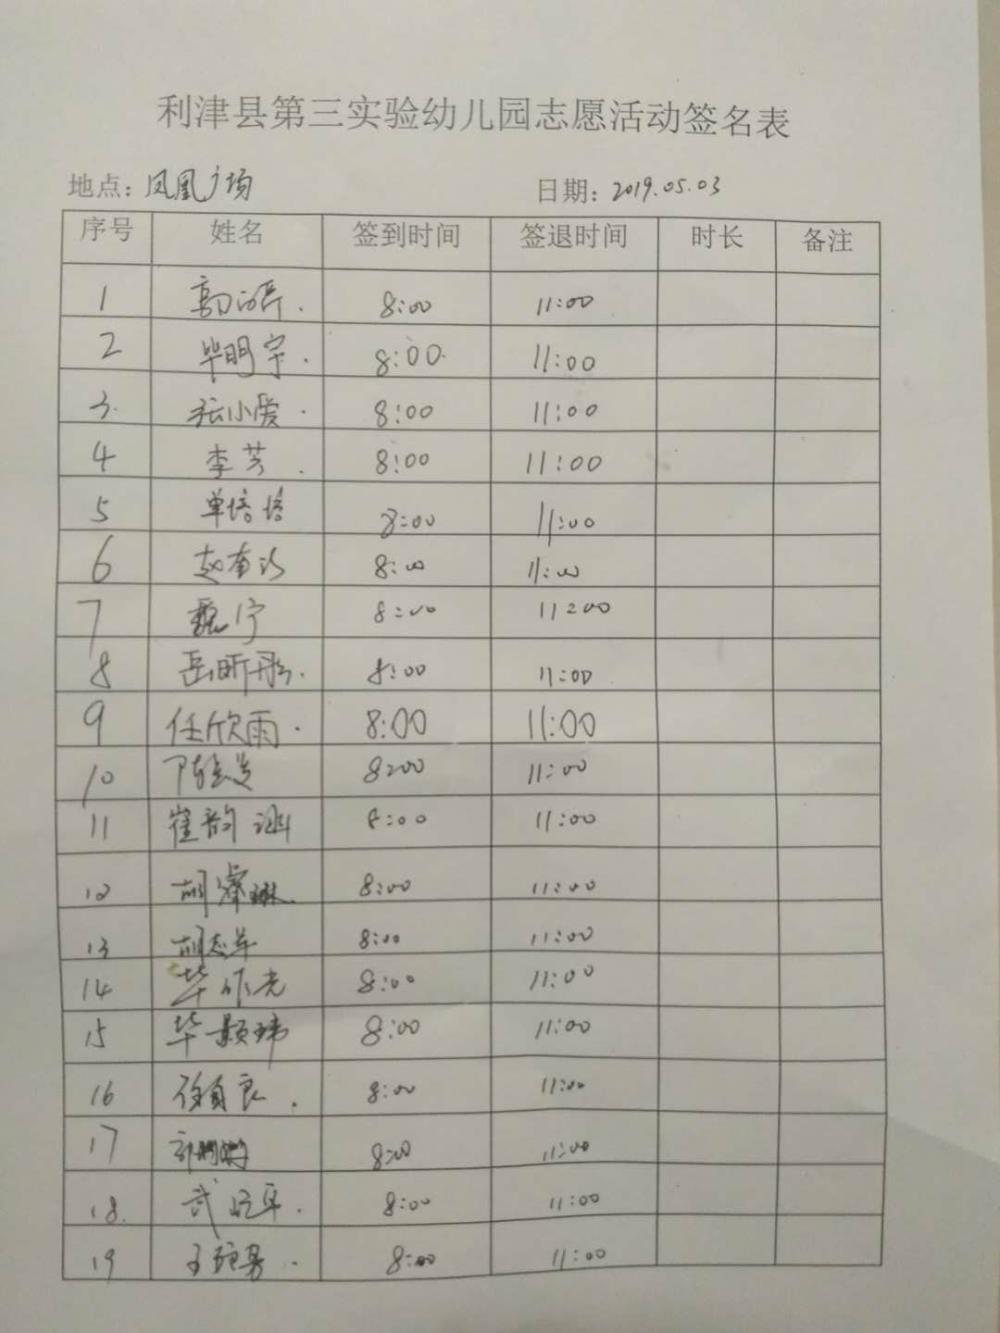 利津县第三实验幼儿园志愿活动签名表
地点：凤凰广场 日期：2019.05.03
序号 姓名 签到时间 签退时间 时长 备注
1 8:00 11:00
2 毕明宇. 8:00. 11:00
3. 张小爱. 8:00 11:00
4 李芳. 8:00 11:00
5 单培培 8:00 11:00
6 赵 8:00 11:00
7 魏宁 8:00 11:00
8 岳昕彤. 8:00 11:00
9 任欣雨. 8:00 11:00
10 陈 8:00 11:00
11 崔韵涵 8:00 11:00
12 胡睿琳. 8:00 11:00
13 胡志军 8:00 11:00
14 毕作光 8:00 11:00
15 毕颢玮 8:00 11:00
16 8:00 11:00
17 8:00 11:00
18. 武 8:00 11:00
19 王 8:00 11:00